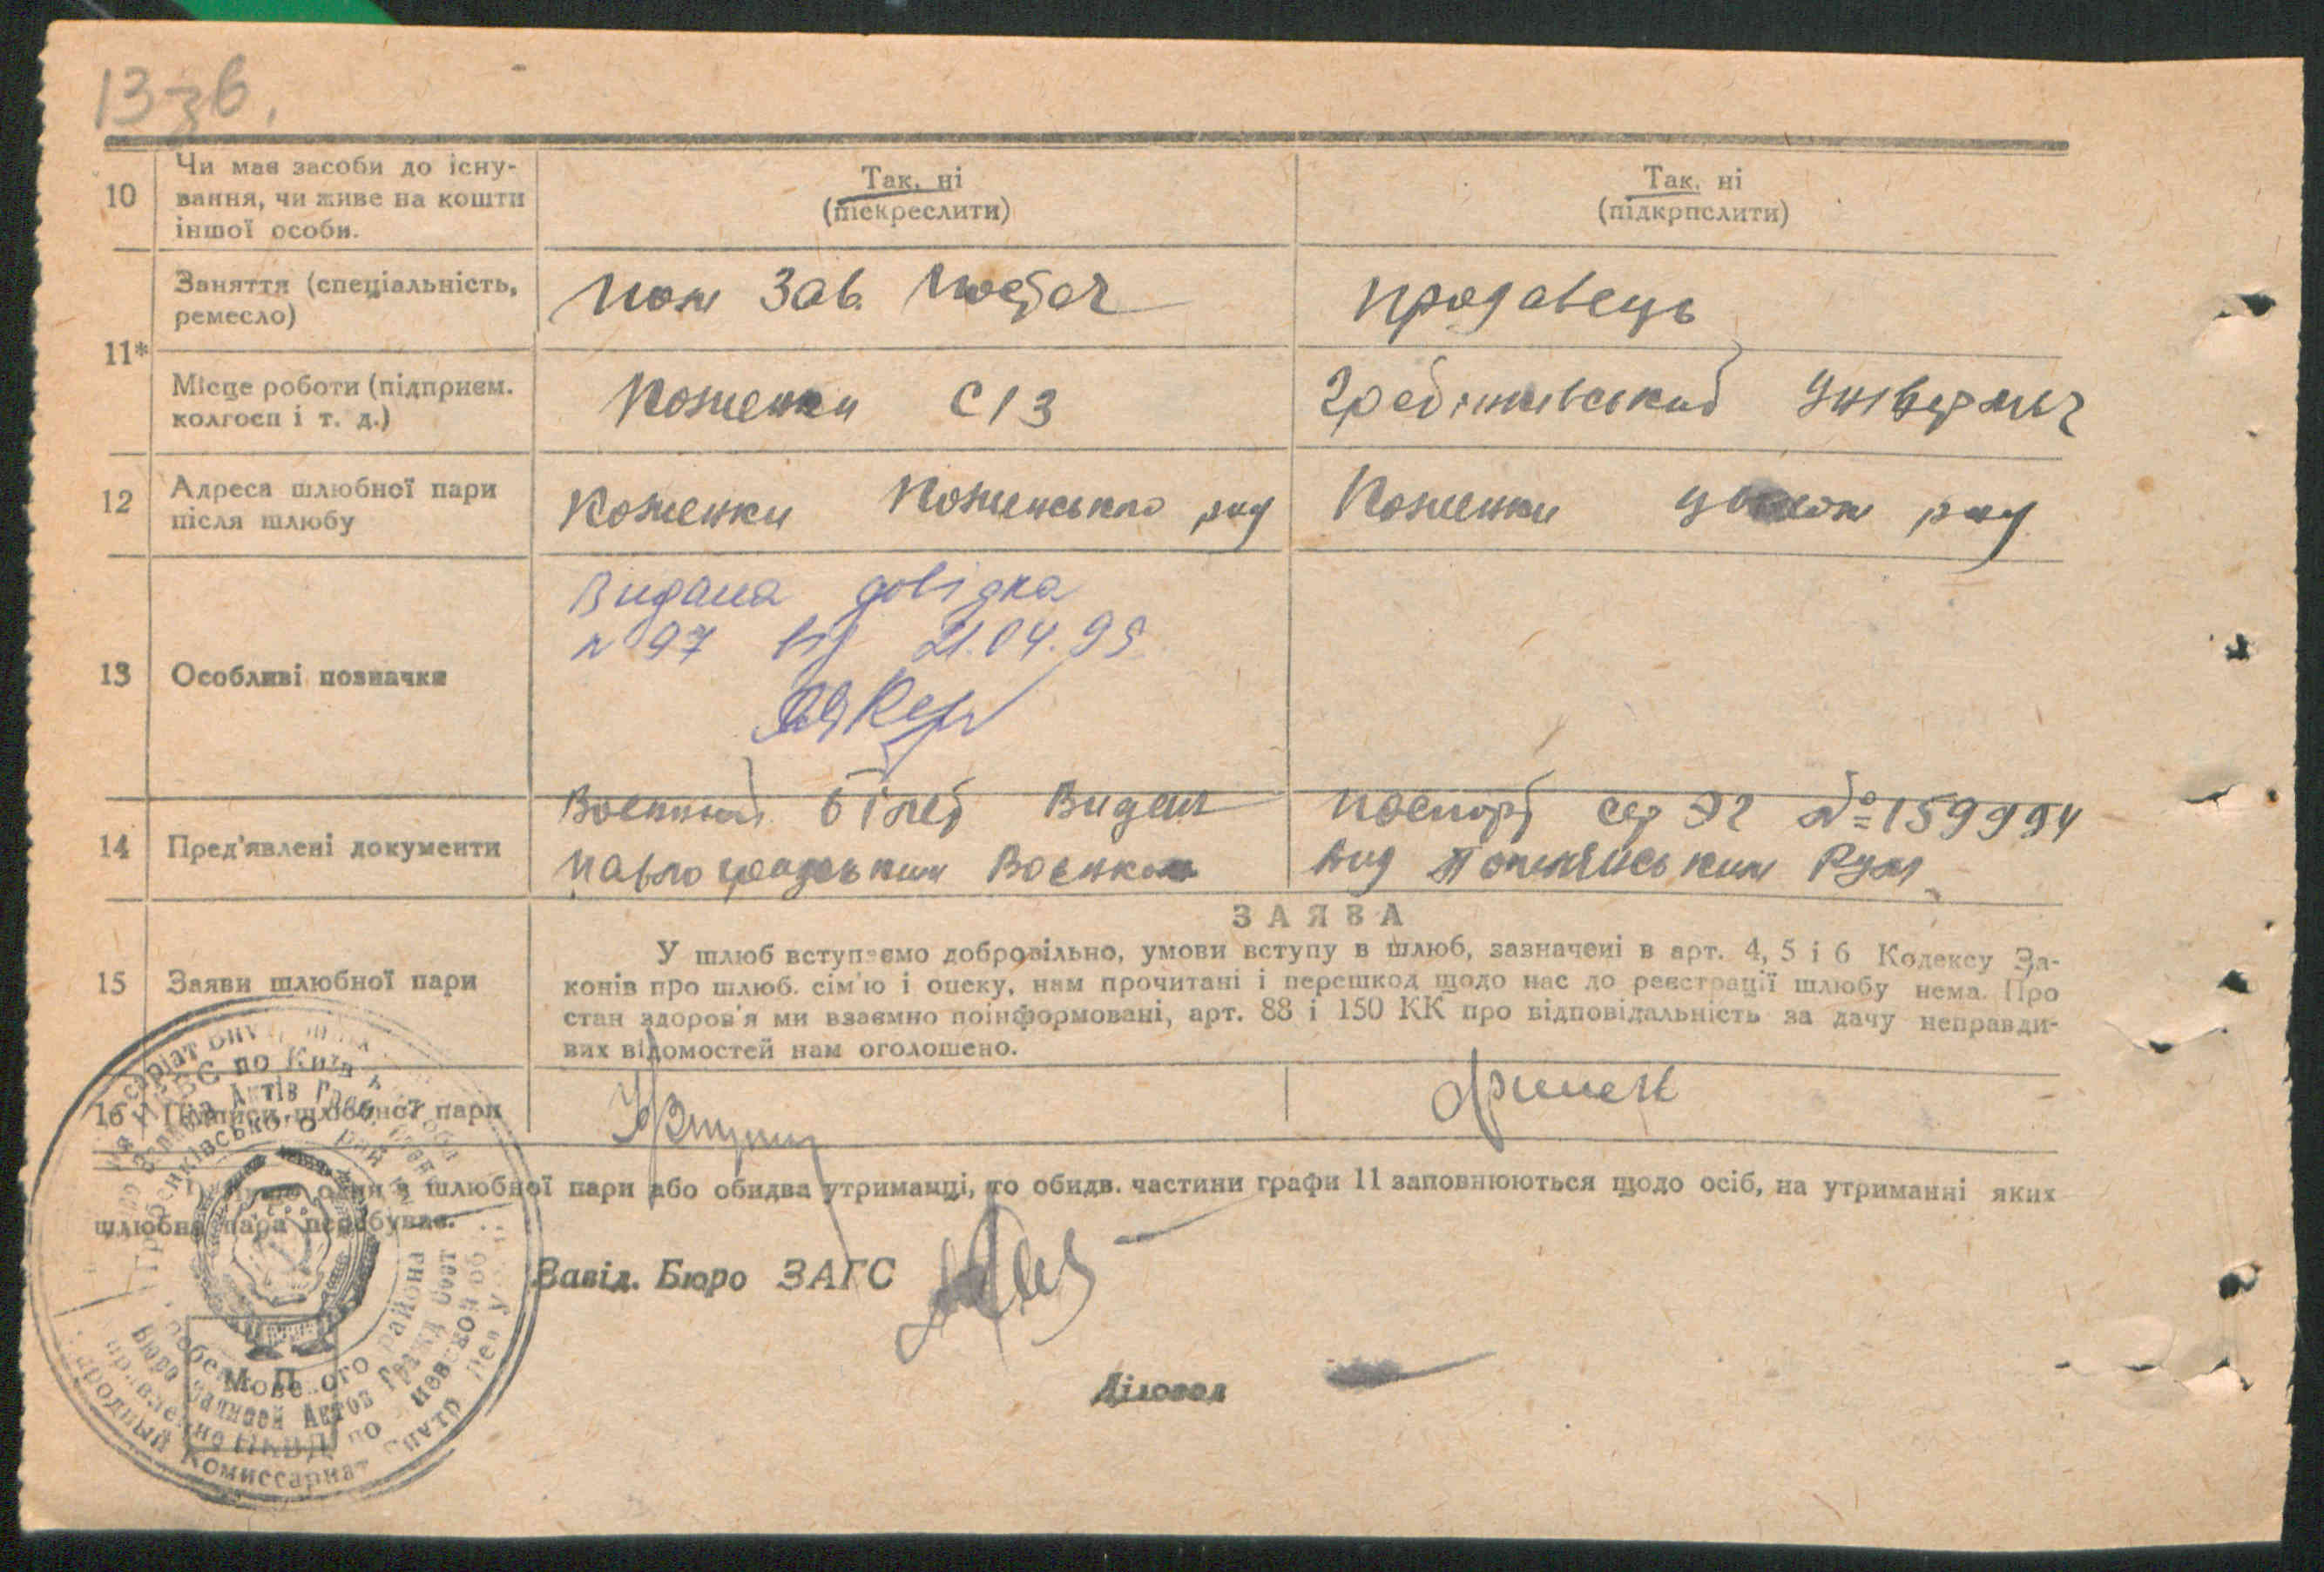 13зв.
10
Чи має засоби до існу-
вання, чи живе на кошти
іншої особи.
Так, ні
(підкреслити)
Так, ні
(підкрпслити)
11*
Заняття (спеціальність,
ремесло)
Пом Зав.
продавець
Місце роботи (підприєм.
колгосп і т. д.)
Коженки
Гребінківський Універмаг
12
Адреса шлюбної пари
після шлюбу
Коженки рад
Коженки рад
13
Особливі позначки
Видана довідка
№ 97 від 21.04.95
14
Пред'явлені документи
Военний білет Видан
Павлоградським Военком
паспорт сер ЭГ № 159994
вид
15
Заяви шлюбної пари
ЗАЯВА
У шлюб вступаємо добровільно, умови вступу в шлюб, зазначені в арт. 4, 5 і 6 Кодексу За-
конів про шлюб. сім'ю і опеку, нам прочитані і перешкод щодо нас до реєстрації шлюбу нема. Про
стан здоров'я ми взаємно поінформовані, арт. 88 і 150 КК про відповідальність за дачу неправди-
вих відомостей нам оголошено.
16
Підписи шлюбної пари
один з шлюбної пари або обидва утриманці, то обидв. частини графи 11 заповнюються щодо осіб, на утриманні яких
шлюбна пара перебуває.
Завід. Бюро ЗАГС
Діловод
М. П.